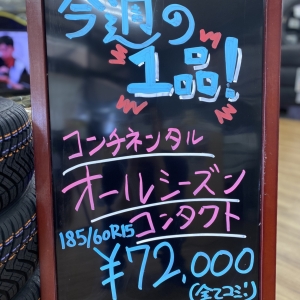 今週の
1品!
コンチネンタル
オールシーズン
コンタクト
185/60R15
¥72,000
(全てコミ!)